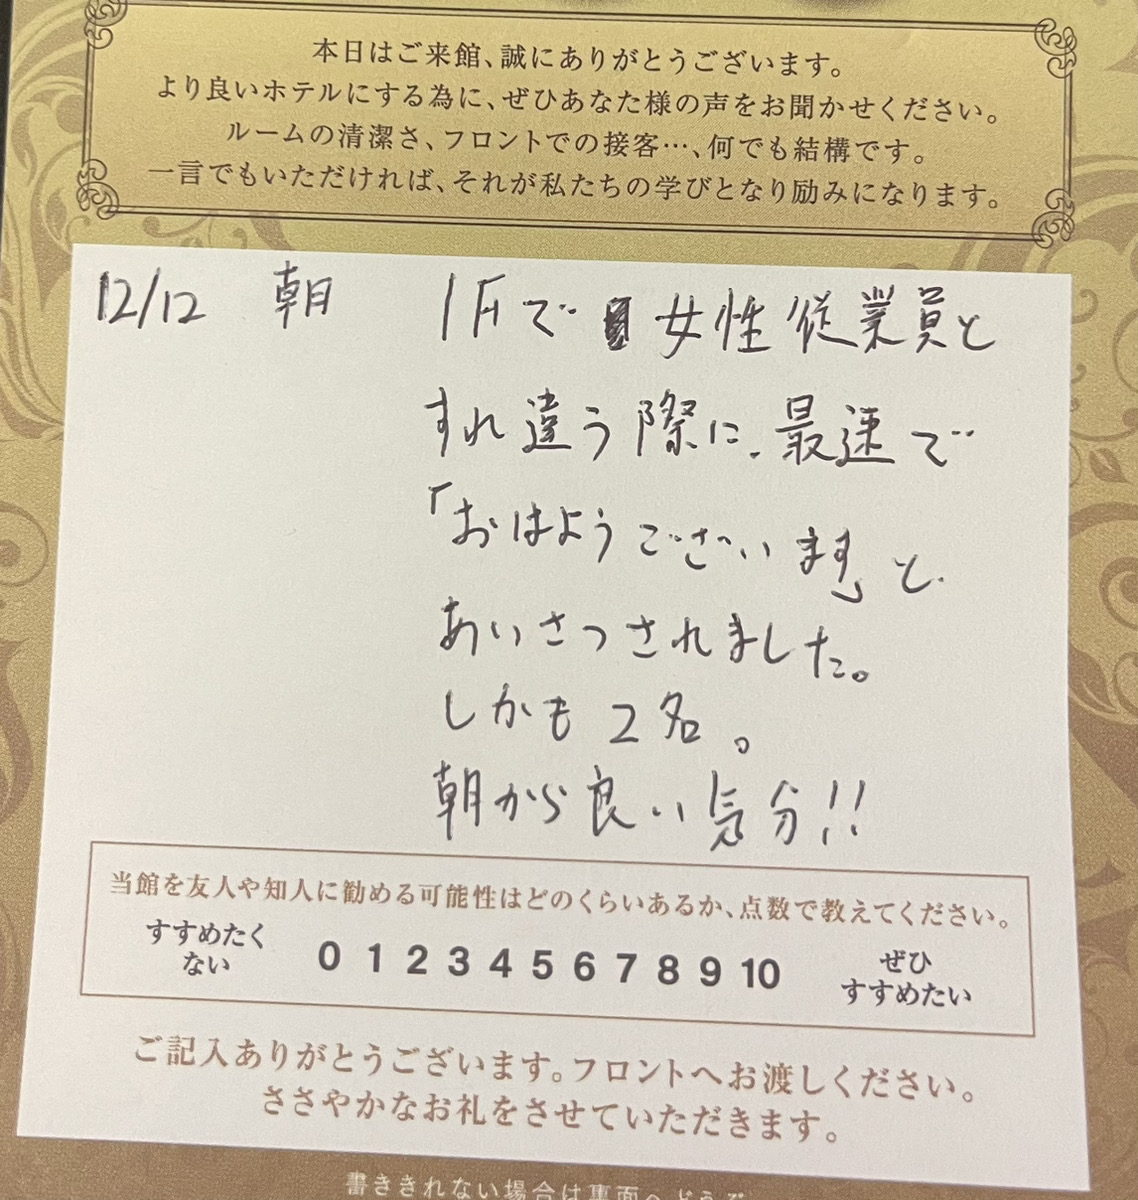 本日はご来館、誠にありがとうございます。
より良いホテルにする為に、ぜひあなた様の声をお聞かせください。
ルームの清潔さ、フロントでの接客…、何でも結構です。
一言でもいただければ、それが私たちの学びとなり励みになります。
12/12 朝 1Fで 女性従業員と
すれ違う際に、最速で
「おはようございます」と
あいさつされました。
しかも2名。
朝から良い気分!!
当館を友人や知人に勧める可能性はどのくらいあるか、点数で教えてください。
すすめたくない 0 1 2 3 4 5 6 7 8 9 10 ぜひすすめたい
ご記入ありがとうございます。フロントへお渡しください。
ささやかなお礼をさせていただきます。
書ききれない場合は裏面へどうぞ